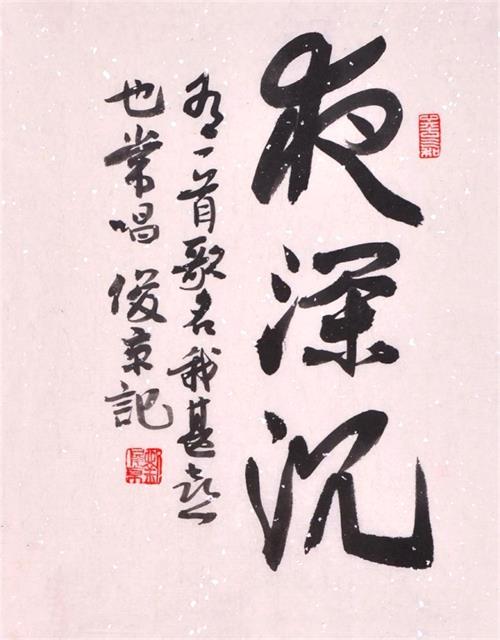 夜深沉
為一首歌名我甚喜
也常唱 俊京記